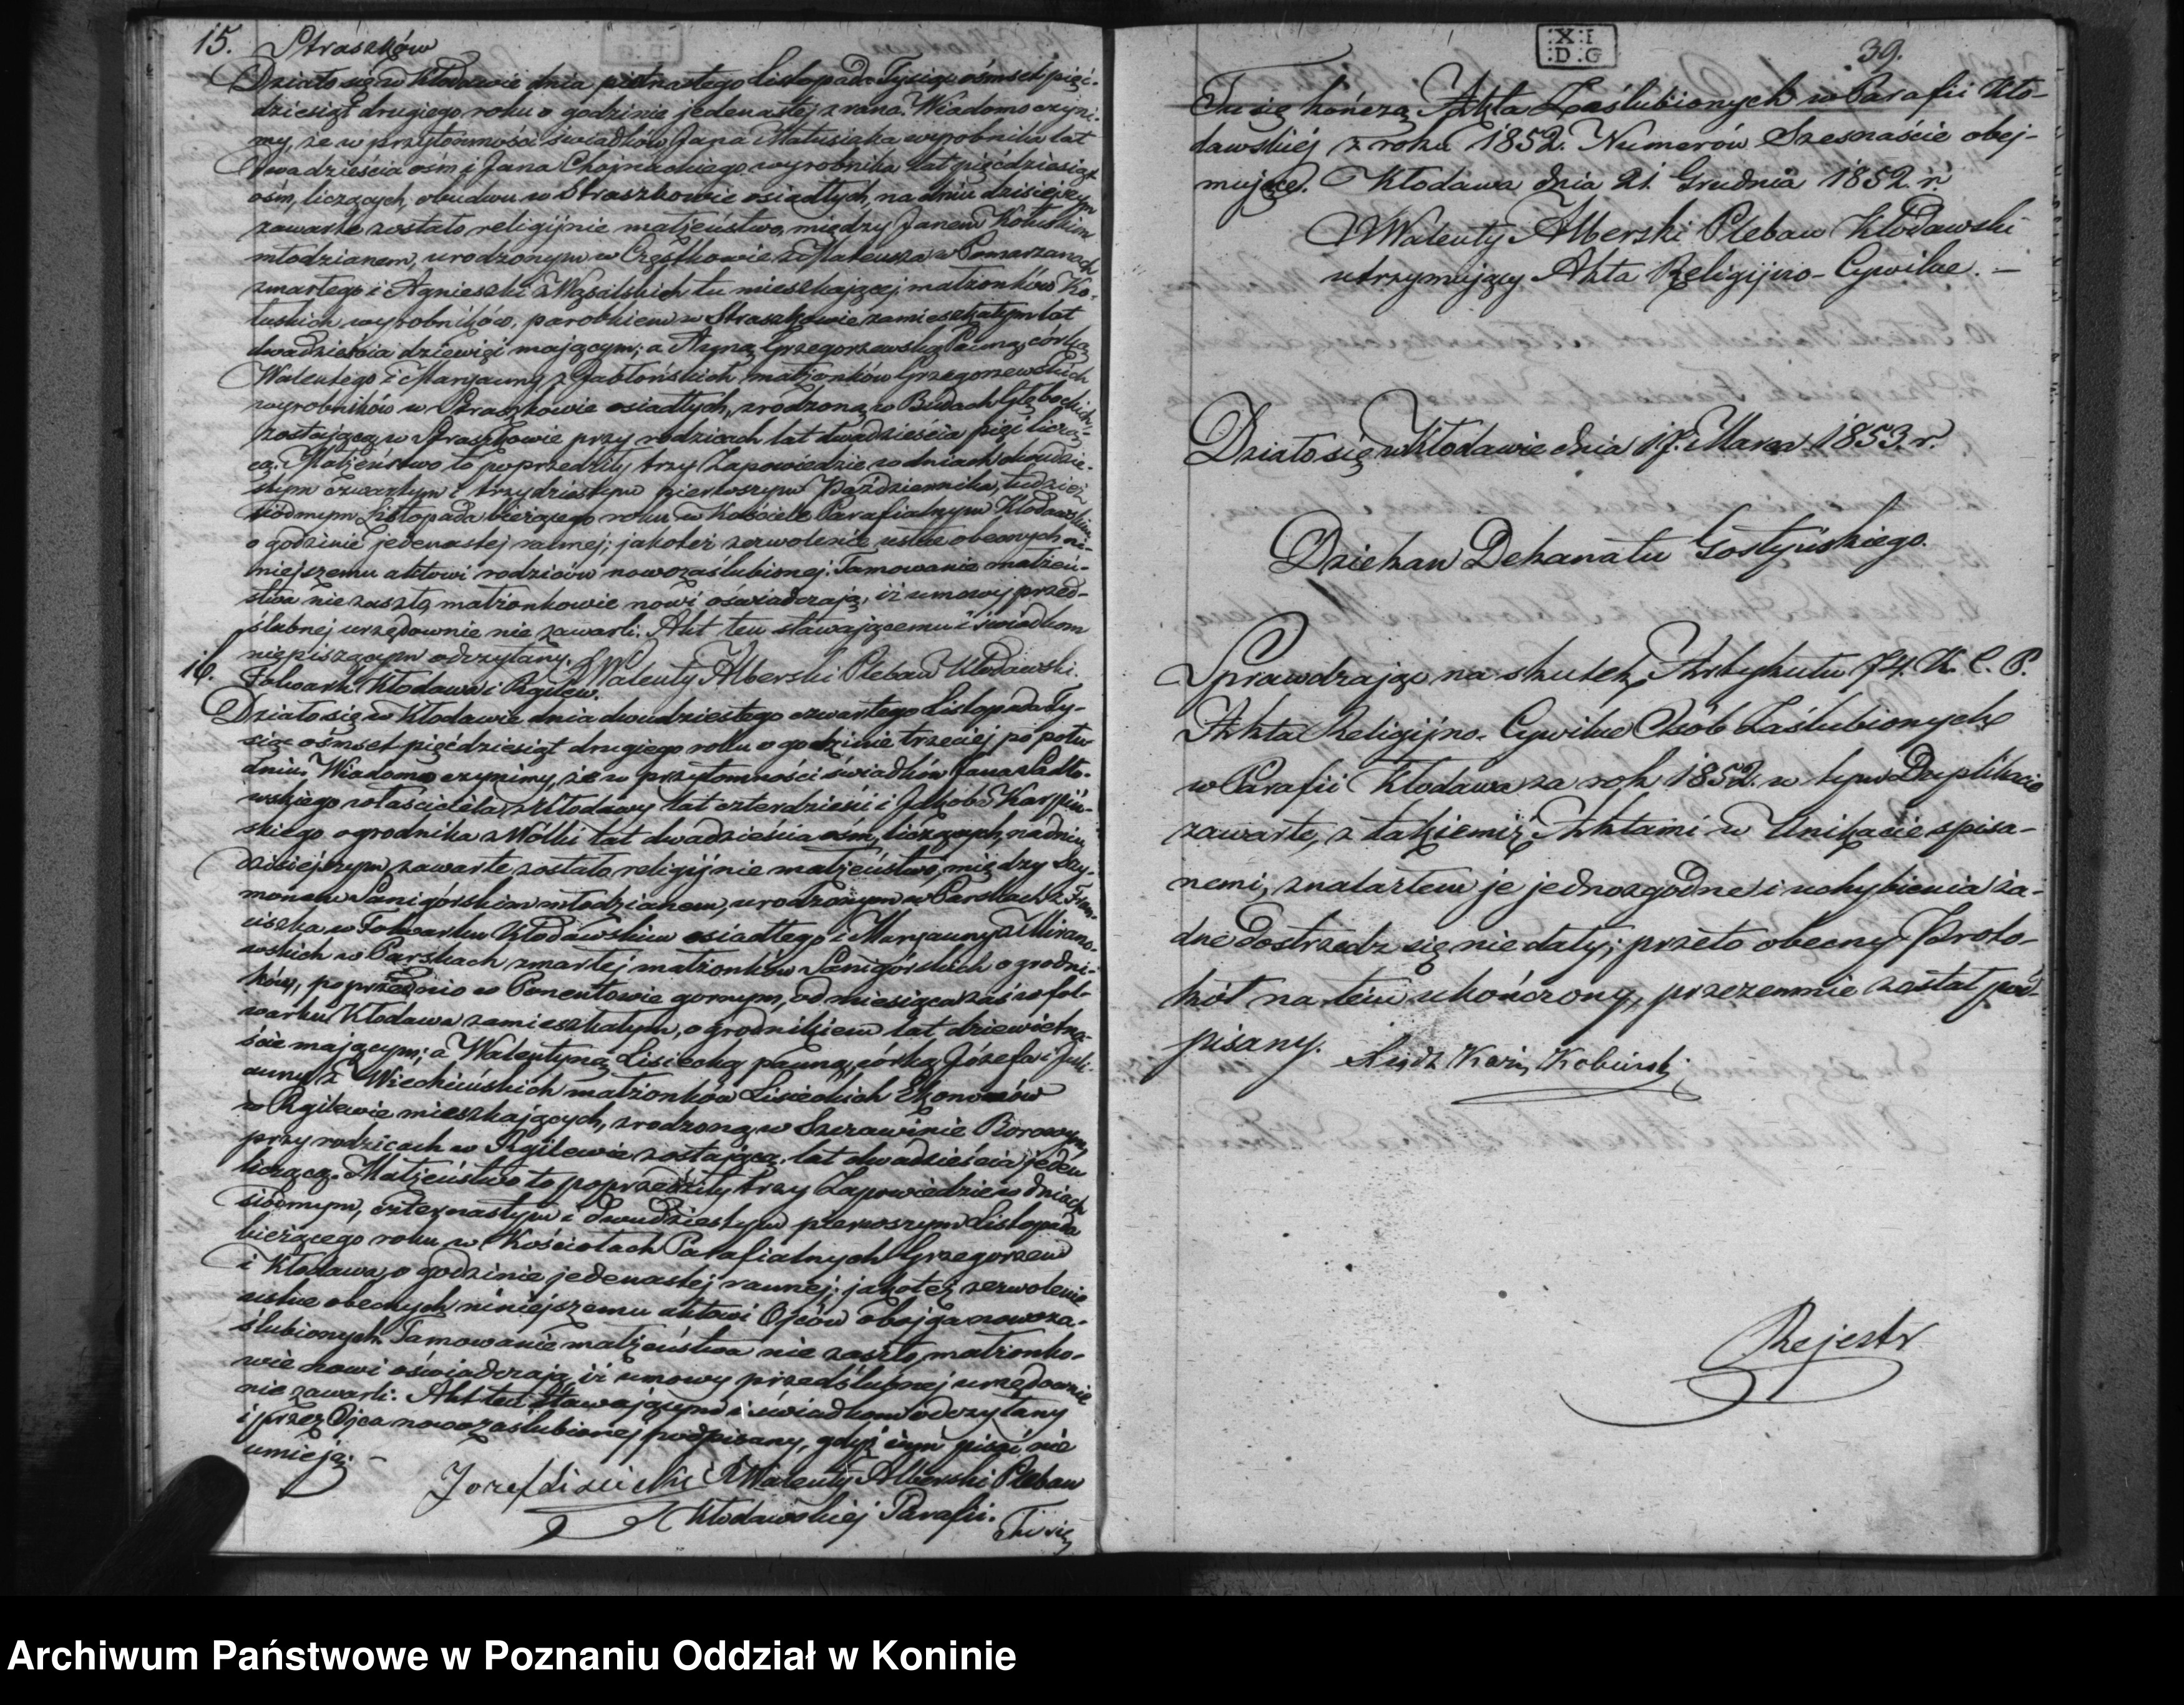 15. Straszków
Działo się w Kłodawie dnia piętnastego Listopada Tysiąc ośmset pięć-
dziesiąt drugiego roku o godzinie jedenastej z rana. Wiadomo czyni-
my, że w przytomności świadków Jana Matusiaka wyrobnika lat
dwadzieścia ośm i Jana Chojnackiego wyrobnika lat pięćdziesiąt
ośm, liczących, obudwu w Straszkowie osiadłych, na dniu dzisiejszym
zawarte zostało religijnie małżeństwo, między Janem Kotuskim
młodzianem, urodzonym w Cząstkowie z Mateusza w Pomarzanach
zmarłego i Agnieszki z Wąsalskich tu mieszkającej, małżonków Ko-
tuskich wyrobników, parobkiem w Straszkowie zamieszkałym lat
dwadzieścia dziewięć mającym; a Anną Grzegorzewską Panną, córką
Walentego i Maryanny z Jabłońskich małżonków Grzegorzewskich
wyrobników w Straszkowie osiadłych, zrodzoną w Budach Głębockich,
zostającą w Straszkowie przy rodzicach lat dwadzieścia pięć liczą-
cą. Małżeństwo to poprzedziły trzy Zapowiedzie w dniach dwudzie-
stym czwartym i trzydziestym pierwszym Października, tudzież
siódmym Listopada bieżącego roku w Kościele Parafialnym Kłodawskim
o godzinie jedenastej rannej; jakoteż zezwolenie ustne obecnych ni-
niejszemu aktowi rodziców nowozaślubionej. Tamowanie małżeń-
stwa nie zaszło, małżonkowie nowi oświadczają, iż umowy przed-
ślubnej urzędownie nie zawarli. Akt ten stawającemu i świadkom
niepiszącym odczytany. X Walenty Alberski Pleban Kłodawski.
16. Folwark Kłodawa i Rgilew.
Działo się w Kłodawie dnia dwudziestego czwartego Listopada Ty-
siąc ośmset pięćdziesiąt drugiego roku o godzinie trzeciej po połu-
dniu. Wiadomo czynimy, że w przytomności świadków Jana Sadło-
wskiego właściciela z Kłodawy lat czterdzieści i Jakóba Karpiń-
skiego ogrodnika z Wólki lat dwadzieścia ośm, liczących, na dniu
dzisiejszym, zawarte zostało religijnie małżeństwo, między Szy-
monem Sanigórskim młodzianem, urodzonym w Parskach z Fran-
ciszka w Folwarku Kłodawskim osiadłego i Maryanny z Mirano-
wskich w Parskach zmarłej małżonków Sanigórskich ogrodni-
ków, poprzednio w Ponentowie górnym, od miesiąca zaś w fol-
warku Kłodawa zamieszkałym, ogrodnikiem lat dziewiętna-
ście mającym; a Walentyną Lisiecką panną, córką Józefa i Juli-
anny z Wiechcińskich małżonków Lisieckich Ekonomów
w Rgilewie mieszkających, zrodzoną w Szczawinie Borowym,
przy rodzicach w Rgilewie zostającą, lat dwadzieścia jeden
liczącą. Małżeństwo to poprzedziły trzy Zapowiedzie w dniach
siódmym, czternastym i dwudziestym pierwszym Listopada
bieżącego roku w Kościołach Parafialnych Grzegorzew
i Kłodawa, o godzinie jedenastej rannej; jakoteż zezwolenie
ustne obecnych niniejszemu aktowi Ojców obojga nowoza-
ślubionych. Tamowanie małżeństwa nie zaszło, małżonko-
wie nowi oświadczają, iż umowy przedślubnej urzędownie
nie zawarli. Akt ten stawającym i świadkom odczytany
i przez Ojca nowozaślubionej podpisany, gdyż inni pisać nie
umieją. –
Jozef Lisiecki X Walenty Alberski Pleban
Kłodawskiej Parafii.
Tu się
X I
D G
39.
Tu się kończą Akta Zaślubionych w Parafii Kło-
dawskiéj z roku 1852. Numerów Szesnaście obej-
mujące. Kłodawa dnia 21. Grudnia 1852 r.
X Walenty Alberski Pleban Kłodawski
utrzymujący Akta Religijno-Cywilne. –
Działo się w Kłodawie dnia 17. Marca 1853. r.
Dziekan Dekanatu Gostyńskiego.
Sprawdzając na skutek Artykułu 74. K. C. P.
Akta Religijno-Cywilne Osób Zaślubionych
w Parafii Kłodawa za rok 1852. w tym Duplikacie
zawarte, z takiemiż Aktami w Unikacie spisa-
nemi, znalazłem je jednozgodne i uchybienia ża-
dne dostrzedz się nie dały; przeto obecny Proto-
kół na tém ukończony, przezemnie został pod-
pisany.
Rejestr
Archiwum Państwowe w Poznaniu Oddział w Koninie